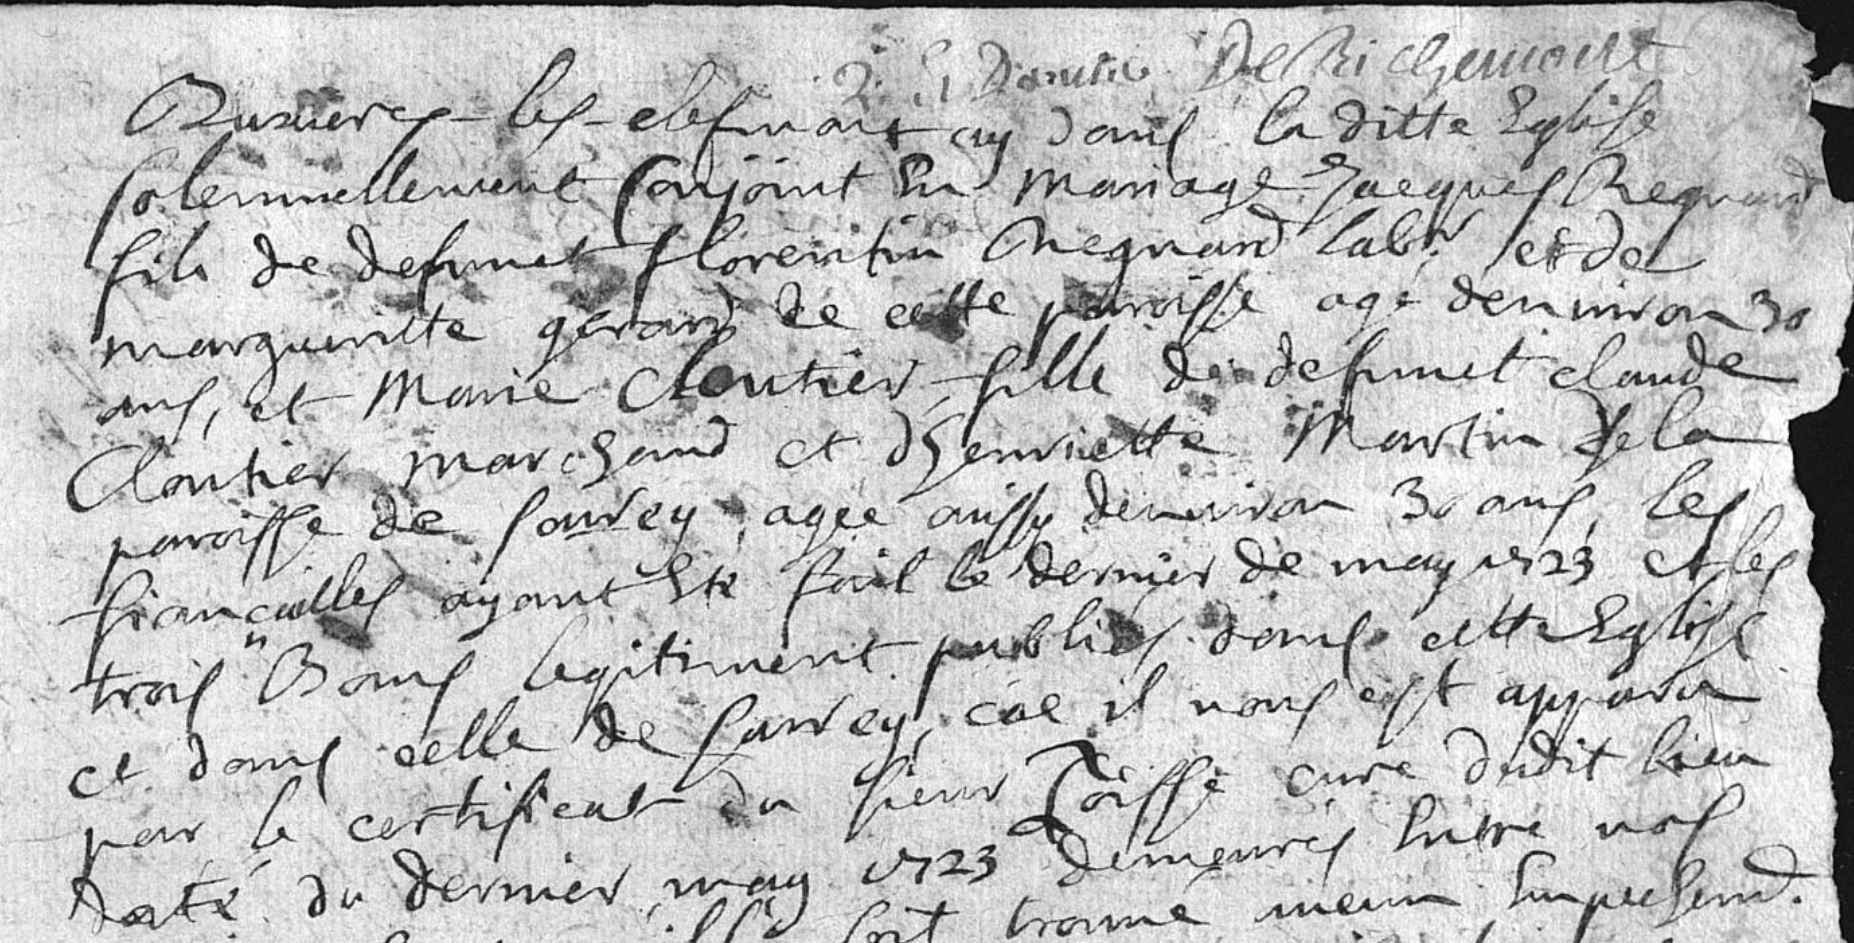 De Richemont
Buxieres-les-clefmont ay dans la ditte Eglise
solemnellement conjoint En Mariage Jacques Regnard
fils de defunct florentin Regnard labr. et de
margueritte gerard de cette paroisse agé denuiron 30
ans, et Marie Cloutier fille de defunct claude
Cloutier marchand et d'henriette Martin de la
paroisse de sarrey, agée aussy denuiron 30 ans, les
fiancailles ayant Eté fait le dernier de may 1723 et les
trois Bans legitiment publiés dans cette Eglise
et dans celle de sarrey, coe il nous est apparu
par le certificat du sieur Toisse curé dudit lieu
daté du dernier may 1723 demeurés Entre nos
soit trouué aucun Empechemt.